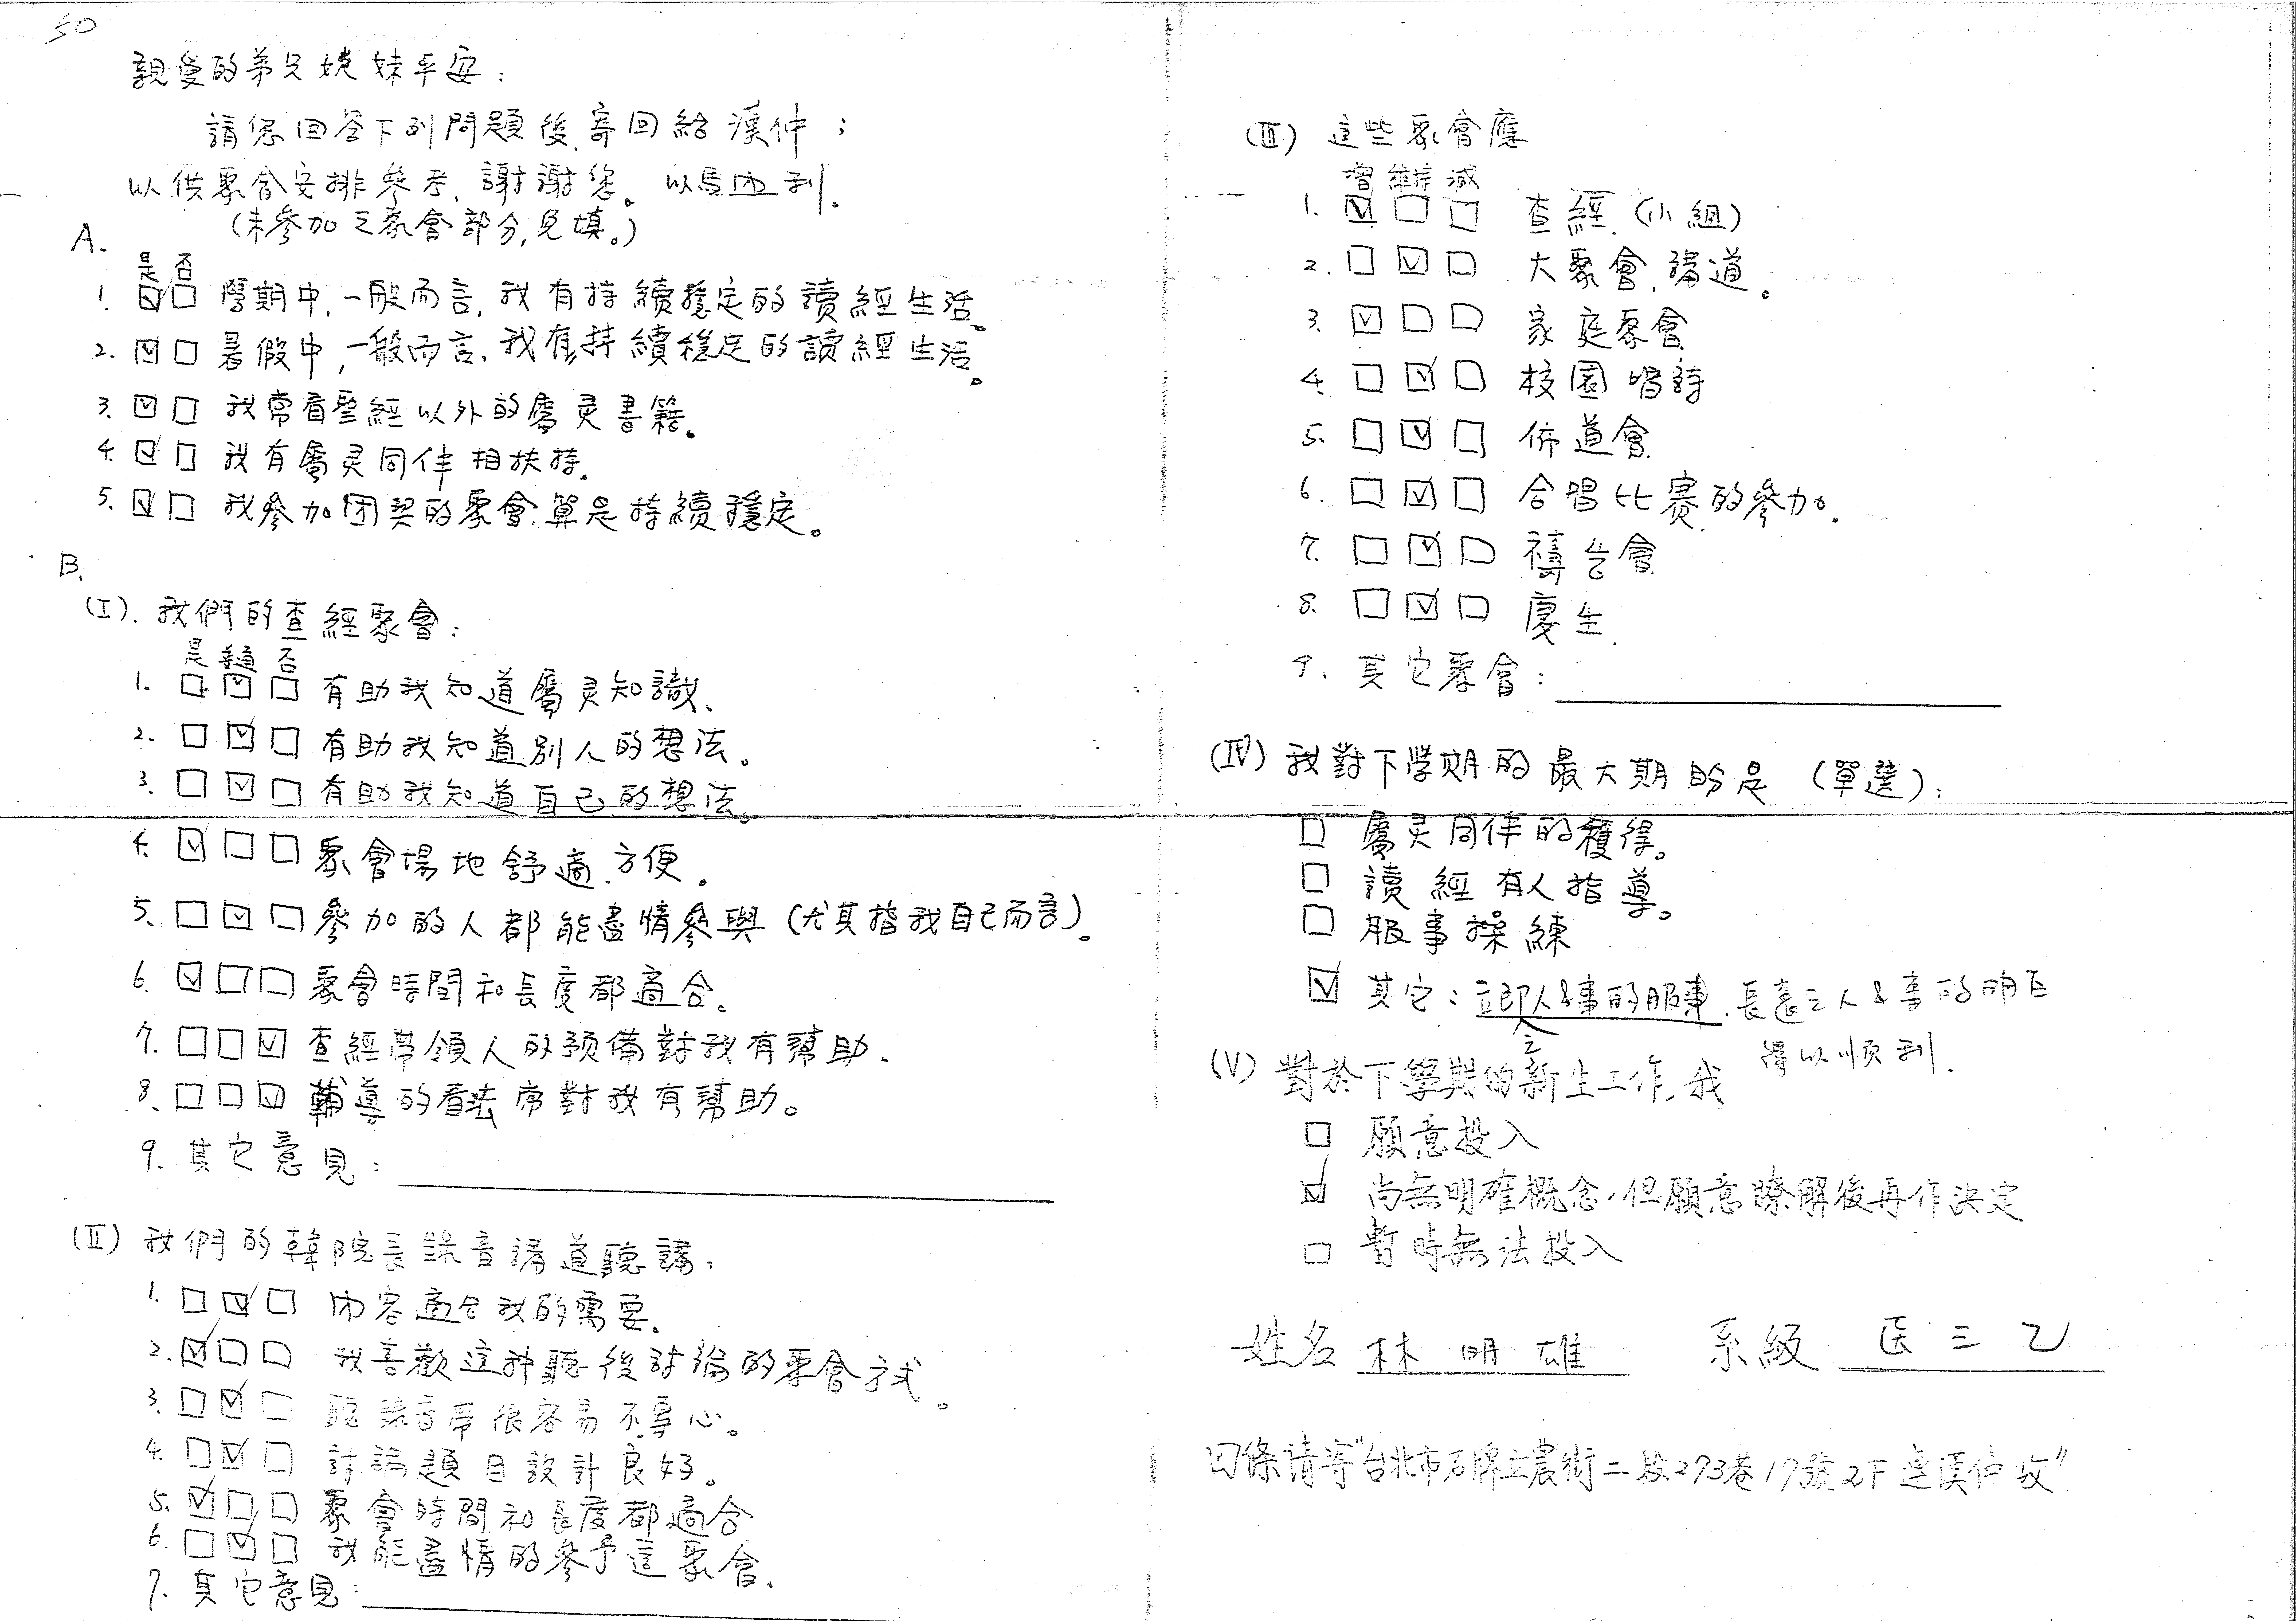 50
親愛的弟兄姊妹平安：
請您回答下列問題後,寄回給漢仲；
以供聚會安排參考,謝謝您。以馬內利.
(未參加之聚會部分,免填。)
A.
是 否
1. ☑☐ 學期中,一般而言,我有持續穩定的讀經生活。
2. ☑☐ 暑假中,一般而言,我有持續穩定的讀經生活。
3. ☑☐ 我常看聖經以外的屬灵書籍。
4. ☑☐ 我有屬灵同伴相扶持.
5. ☑☐ 我參加团契的聚會,算是持續穩定。
B.
(I). 我們的查經聚會：
是 普通 否
1. ☐☑☐ 有助我知道屬灵知識.
2. ☐☑☐ 有助我知道別人的想法。
3. ☐☑☐ 有助我知道自己的想法。
4. ☑☐☐ 聚會場地舒適.方便.
5. ☐☑☐ 參加的人都能盡情參與(尤其指我自己而言)。
6. ☑☐☐ 聚會時間和長度都適合。
7. ☐☐☑ 查經帶領人的預備對我有幫助.
8. ☐☐☑ 輔導的看法常對我有幫助。
9. 其它意見：
(II) 我們的韓院長錄音講道聽講：
1. ☐☑☐ 內容適合我的需要.
2. ☑☐☐ 我喜歡這种聽後討論的聚會方式。
3. ☐☑☐ 聽錄音帶很容易不專心。
4. ☐☑☐ 討論題目設計良好。
5. ☑☐☐ 聚會時間和長度都適合
6. ☐☑☐ 我能盡情的參予這聚會.
7. 其它意見：
(III) 這些聚會應
增 維持 減
1. ☑☐☐ 查經.(小組)
2. ☐☑☐ 大聚會.講道。
3. ☑☐☐ 家庭聚會
4. ☐☑☐ 校園唱詩
5. ☐☑☐ 佈道會
6. ☐☑☐ 合唱比賽的參加.
7. ☐☑☐ 禱告會
8. ☐☑☐ 慶生.
9. 其它聚會：
(IV) 我對下學期的最大期盼是(單選)：
☐ 屬灵同伴的獲得。
☐ 讀經有人指導。
☐ 服事操練
☑ 其它：立即人&事的服事.長遠之人&事的明白
之
得以順利.
(V) 對於下學期的新生工作,我
☐ 願意投入
☑ 尚無明確概念,但願意瞭解後再作決定
☐ 暫時無法投入
姓名 林明雄 系級 医三乙
回條請寄"台北市石牌立農街二段273巷17號2F 漢仲收"